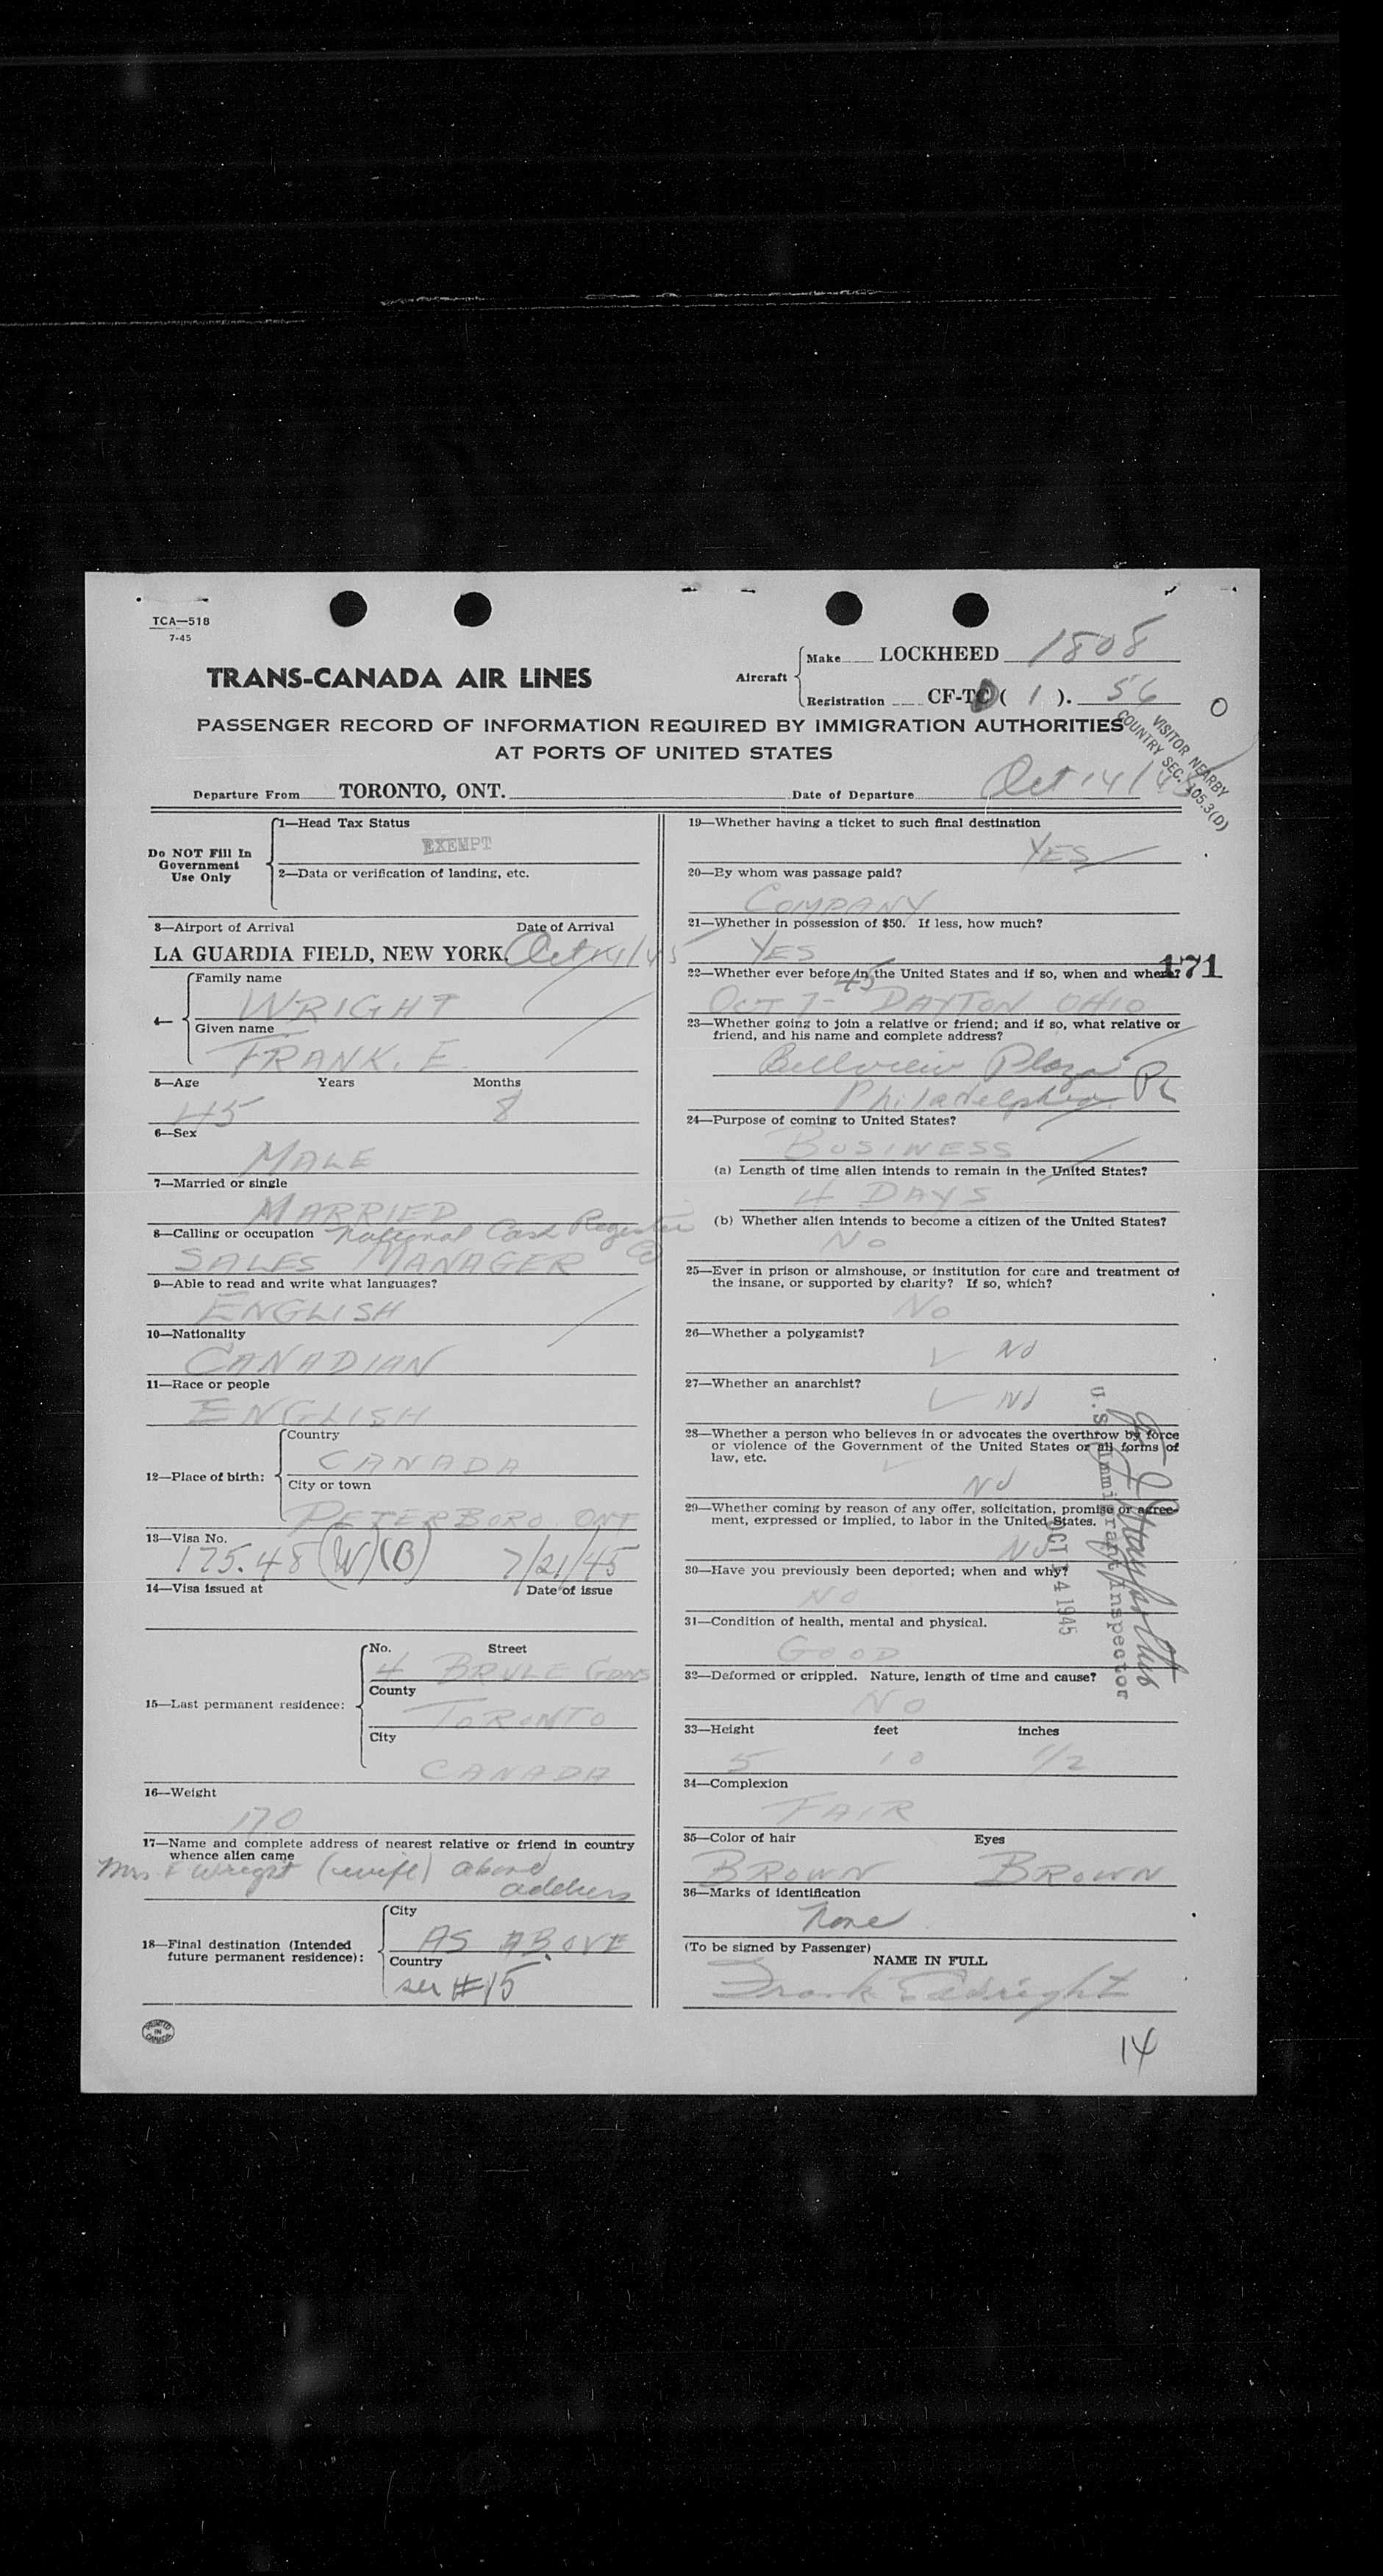 TCA—518
7-45
TRANS-CANADA AIR LINES
Aircraft
Make LOCKHEED 1808
Registration CF-TC ( 1 ). 56
O
PASSENGER RECORD OF INFORMATION REQUIRED BY IMMIGRATION AUTHORITIES
AT PORTS OF UNITED STATES
VISITOR NEARBY
COUNTRY SEC. 105.3(D)
Departure From TORONTO, ONT. Date of Departure Oct 14/45
Do NOT Fill In
Government
Use Only
1—Head Tax Status
EXEMPT
2—Data or verification of landing, etc.
3—Airport of Arrival Date of Arrival
LA GUARDIA FIELD, NEW YORK. Oct 14/45
4—
Family name
WRIGHT
Given name
FRANK. E.
5—Age Years Months
45 8
6—Sex
MALE
7—Married or single
MARRIED
8—Calling or occupation National Cash Register Co
SALES MANAGER
9—Able to read and write what languages?
ENGLISH
10—Nationality
CANADIAN
11—Race or people
ENGLISH
12—Place of birth:
Country
CANADA
City or town
PETERBORO ONT
13—Visa No.
175.48 (W)(B) 7/21/45
14—Visa issued at Date of issue
15—Last permanent residence:
No. Street
4 BRULE GDNS
County
TORONTO
City
CANADA
16—Weight
170
17—Name and complete address of nearest relative or friend in country
whence alien came
Mrs F Wright (wife) above
address
18—Final destination (Intended
future permanent residence):
City
AS ABOVE
Country
see #15
PRINTED
IN
CANADA
19—Whether having a ticket to such final destination
YES
20—By whom was passage paid?
COMPANY
21—Whether in possession of $50. If less, how much?
YES
171
22—Whether ever before in the United States and if so, when and where?
OCT 7-45 DAYTON OHIO
23—Whether going to join a relative or friend; and if so, what relative or
friend, and his name and complete address?
Bellview Plaza
Philadelphia. Pa
24—Purpose of coming to United States?
BUSINESS
(a) Length of time alien intends to remain in the United States?
4 DAYS
(b) Whether alien intends to become a citizen of the United States?
NO
25—Ever in prison or almshouse, or institution for care and treatment of
the insane, or supported by charity? If so, which?
NO
26—Whether a polygamist?
No
27—Whether an anarchist?
No
28—Whether a person who believes in or advocates the overthrow by force
or violence of the Government of the United States or all forms of
law, etc.
No
29—Whether coming by reason of any offer, solicitation, promise or agree-
ment, expressed or implied, to labor in the United States.
No
30—Have you previously been deported; when and why?
NO
31—Condition of health, mental and physical.
GOOD
32—Deformed or crippled. Nature, length of time and cause?
NO
33—Height feet inches
5 10 1/2
34—Complexion
FAIR
35—Color of hair Eyes
BROWN BROWN
36—Marks of identification
None
(To be signed by Passenger)
NAME IN FULL
Frank E Wright
U.S. Immigrant Inspector
OCT 14 1945
14